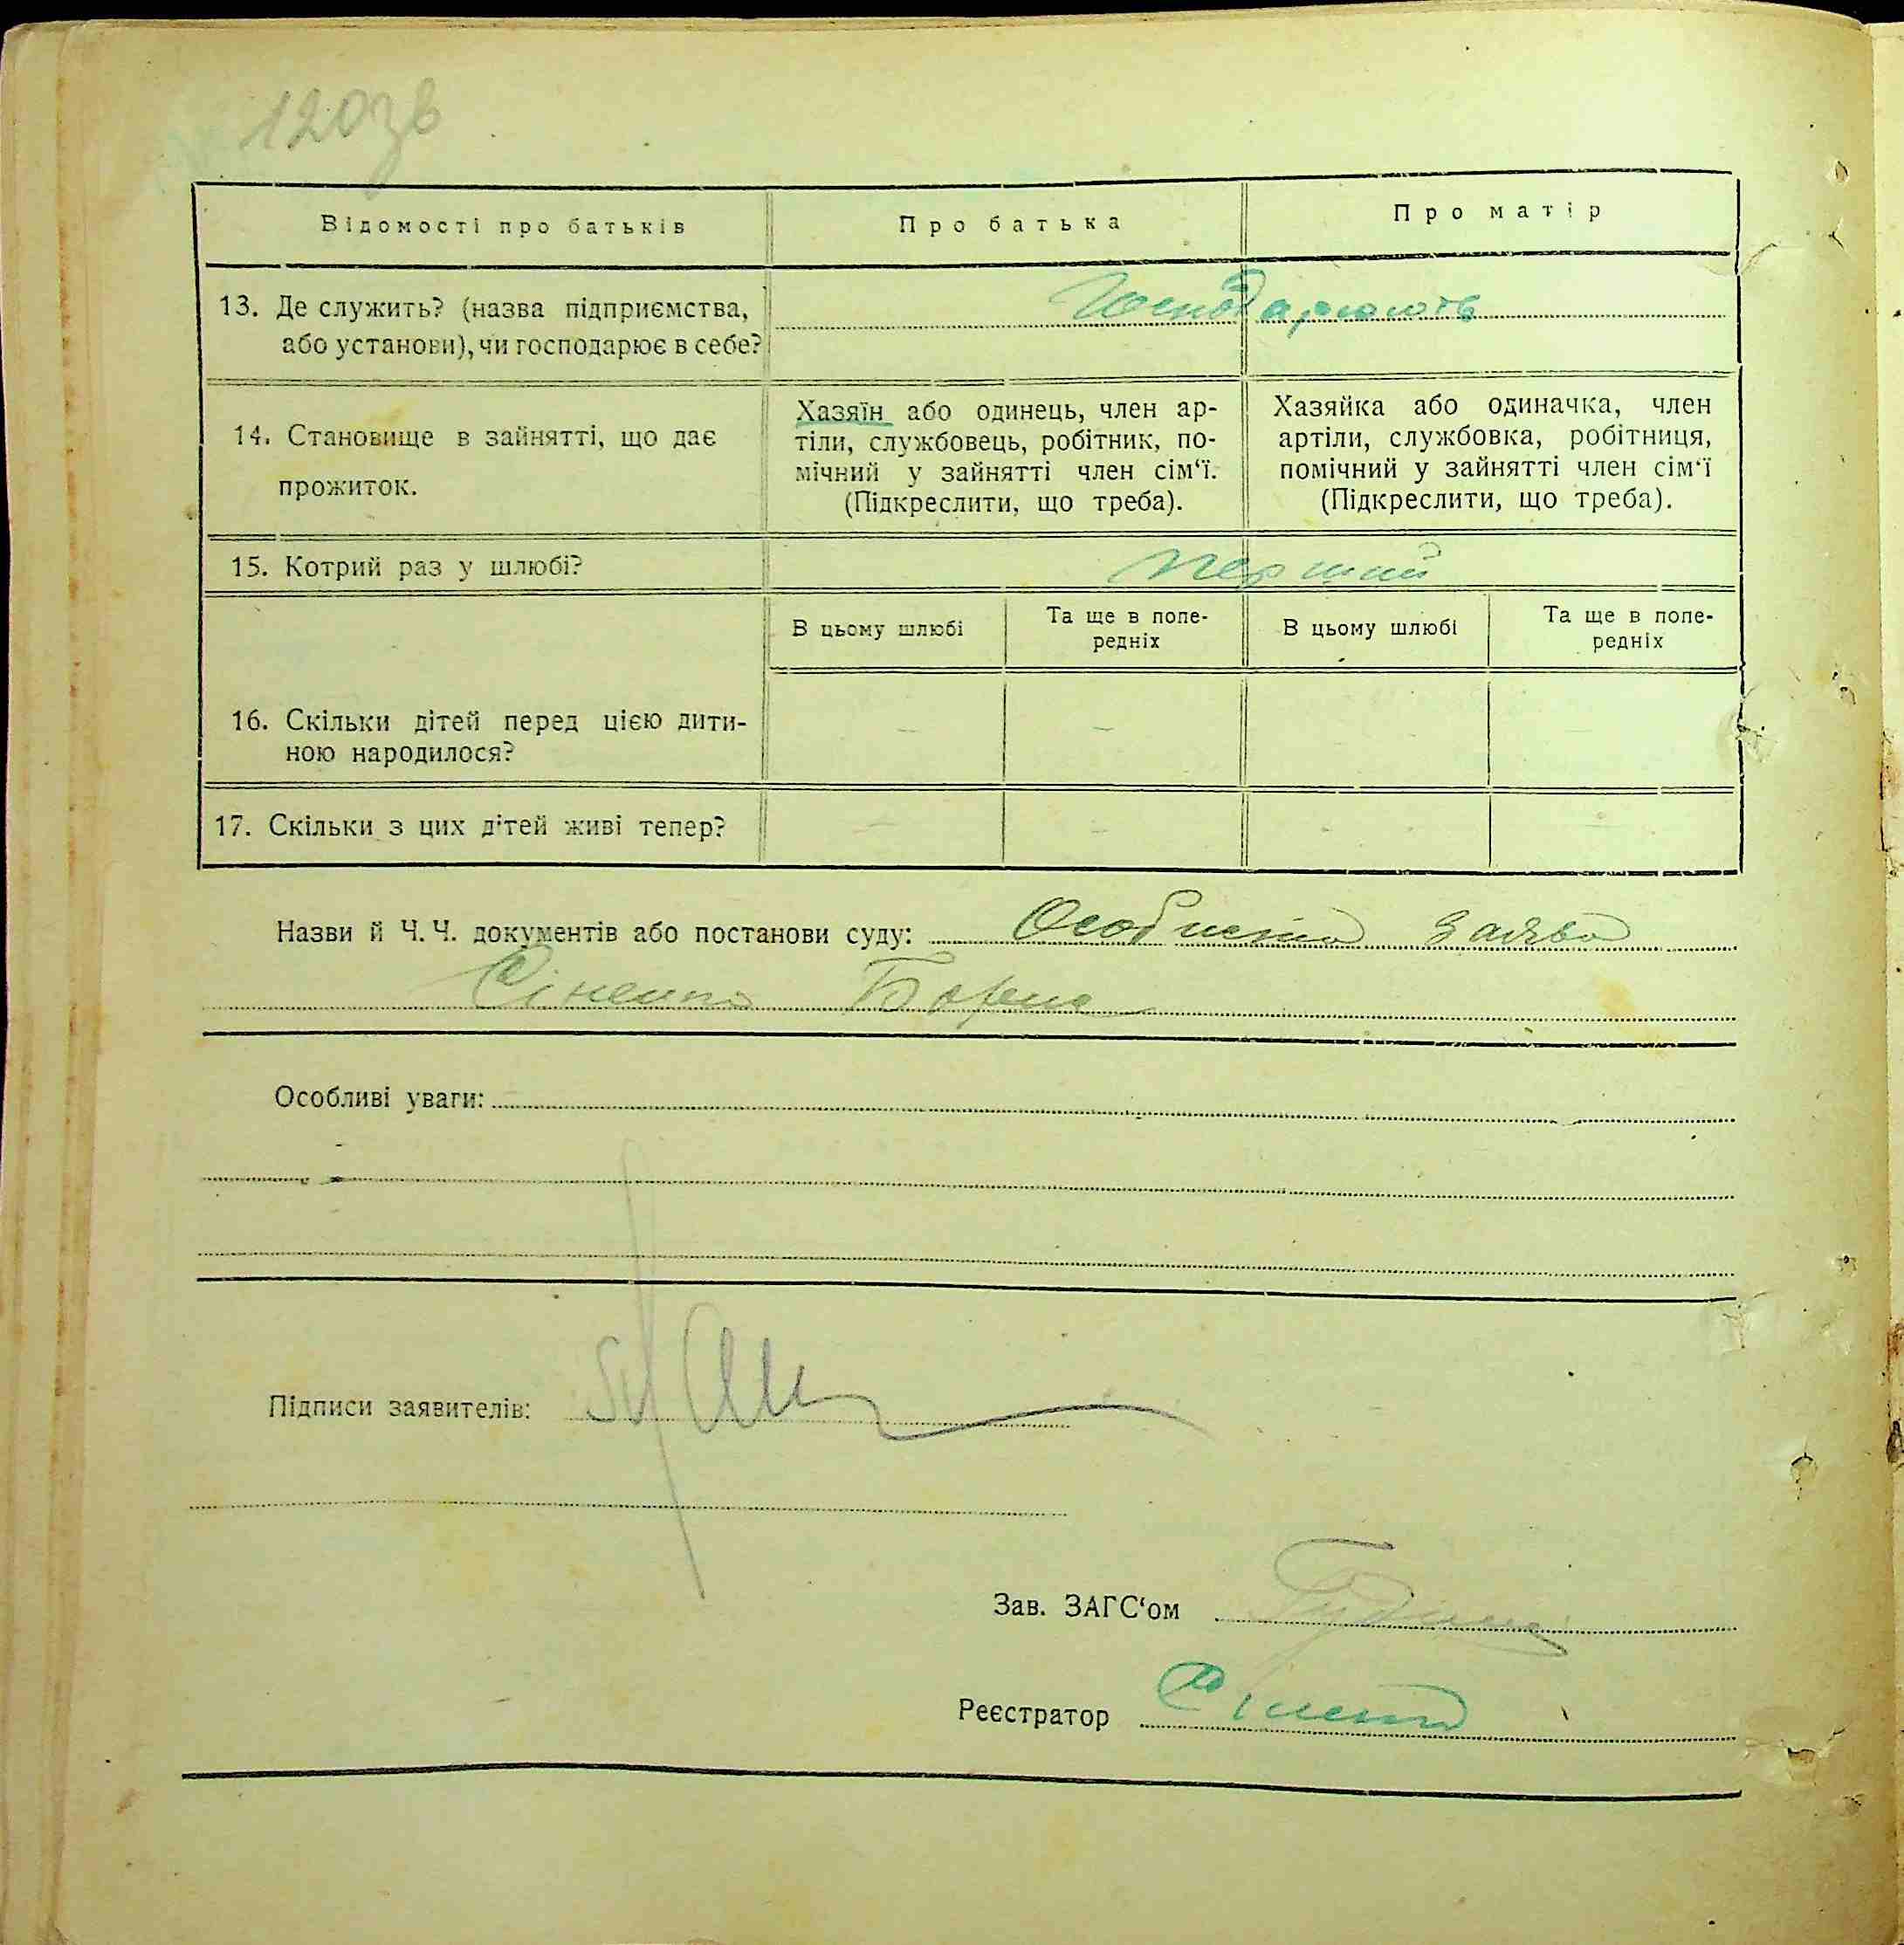 120зв
Відомості про батьків
Про батька
Про матір
13. Де служить? (назва підприємства,
або установи), чи господарює в себе?
Господарюють
14. Становище в зайнятті, що дає
прожиток.
Хазяїн або одинець, член ар-
тіли, службовець, робітник, по-
мічний у зайнятті член сім‘ї.
(Підкреслити, що треба).
Хазяйка або одиначка, член
артіли, службовка, робітниця,
помічний у зайнятті член сім‘ї
(Підкреслити, що треба).
15. Котрий раз у шлюбі?
перший
В цьому шлюбі
Та ще в попе-
редніх
В цьому шлюбі
Та ще в попе-
редніх
16. Скільки дітей перед цією дити-
ною народилося?
— —
17. Скільки з цих дітей живі тепер?
— — - -
Назви й Ч. Ч. документів або постанови суду: Особиста заява
Особливі уваги:
Підписи заявителів:
Зав. ЗАГС‘ом
Реєстратор